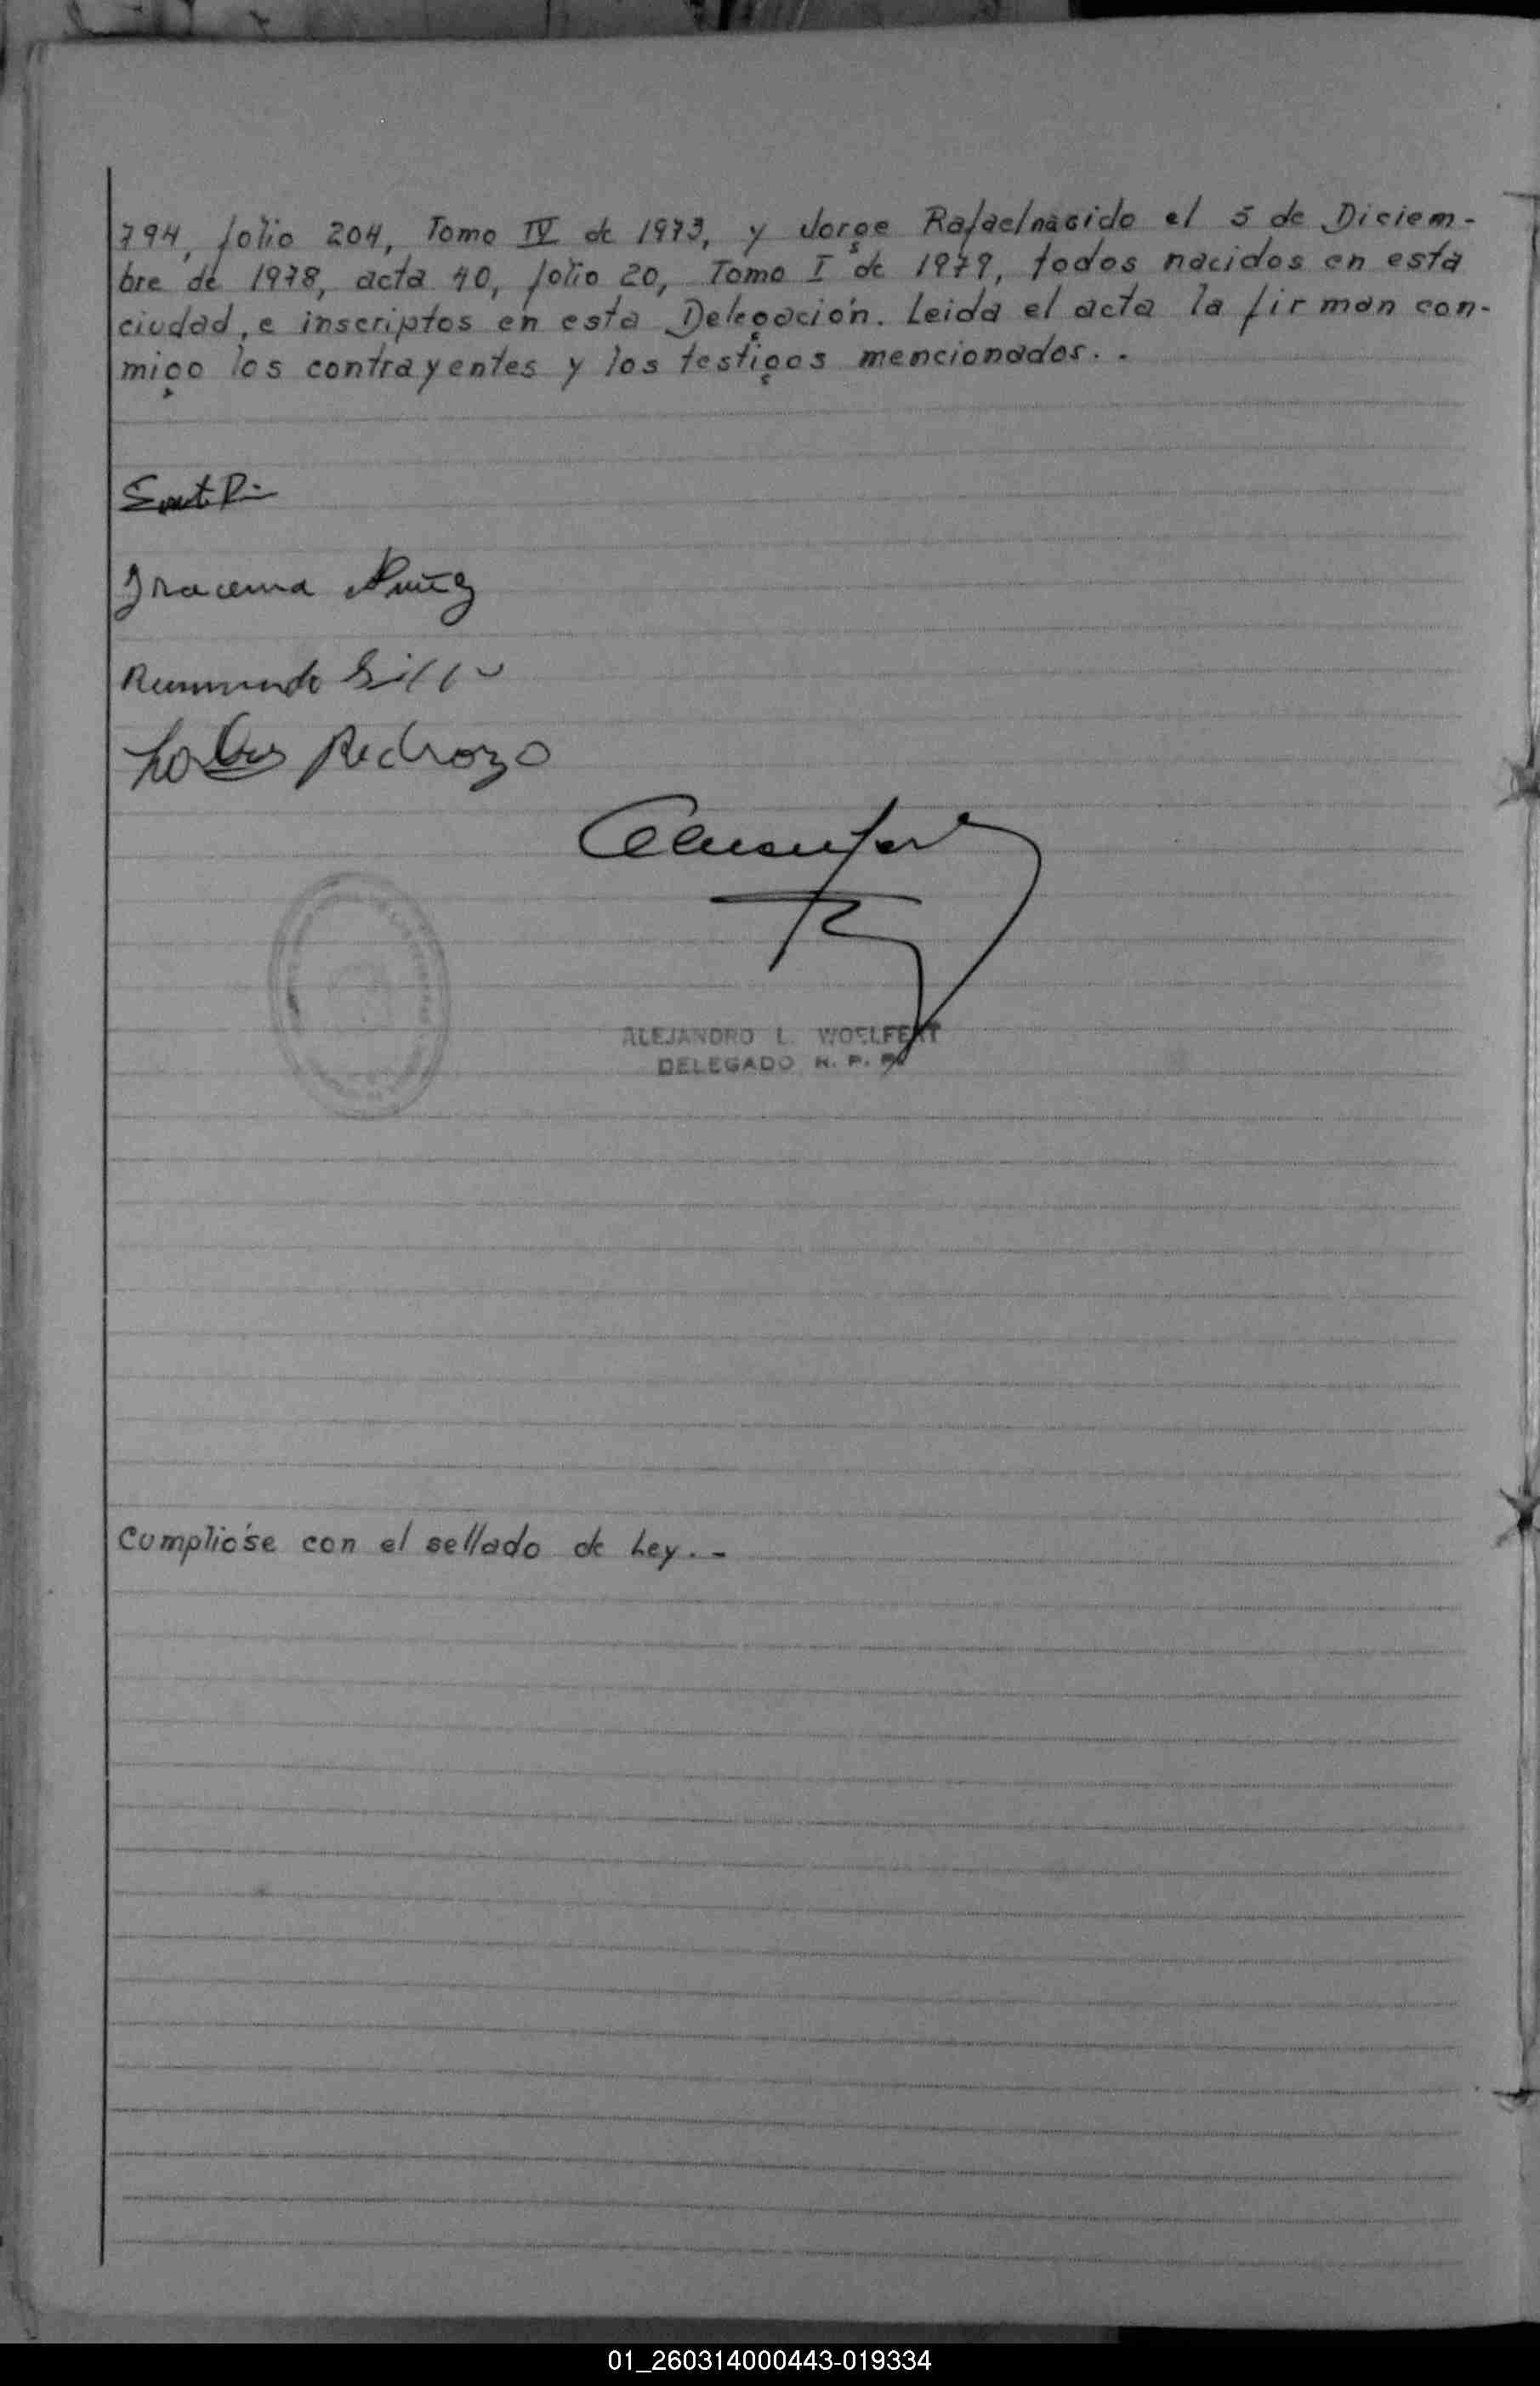 794, folio 204, Tomo IV de 1973, y Jorge Rafael nacido el 5 de Diciem-
bre de 1978, acta 40, folio 20, Tomo I de 1979, todos nacidos en esta
ciudad, e inscriptos en esta Delegación. Leida el acta la firman con-
migo los contrayentes y los testigos mencionados. .
Iracema Nuñez
Pedrozo
ALEJANDRO L. WOELFERT
DELEGADO R. P. P.
Cumplióse con el sellado de Ley. -
01_260314000443-019334